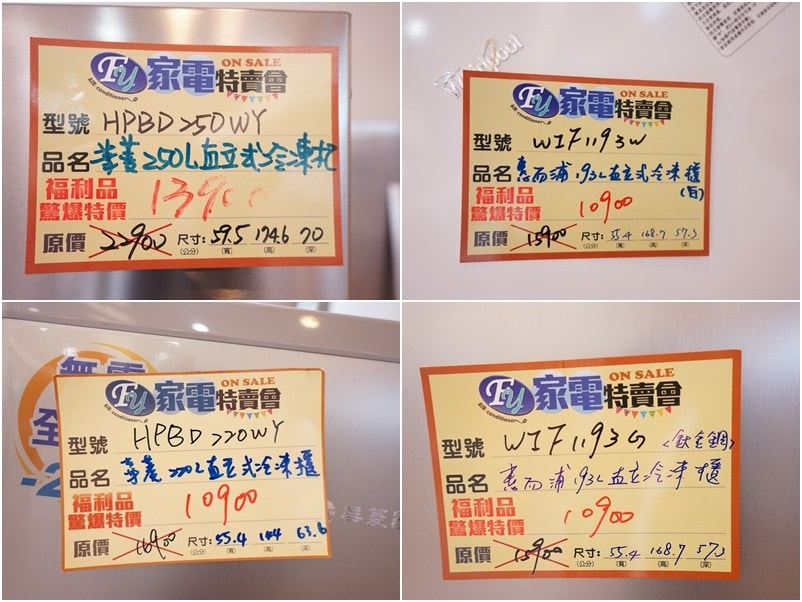 Fy 家電特賣會 ON SALE
AIR conditioner
型號 HPBD250WY
品名 華菱250L直立式冷凍櫃
福利品
驚爆特價 13900
原價 22900 尺寸: 59.5 174.6 70
(公分) (寬) (高) (深)
Fy 家電特賣會 ON SALE
AIR conditioner
型號 WIF1193W
品名 惠而浦193L直立式冷凍櫃
(白)
福利品
驚爆特價 10900
原價 15900 尺寸: 55.4 168.7 57.3
(公分) (寬) (高) (深)
Fy 家電特賣會 ON SALE
AIR conditioner
型號 HPBD220WY
品名 華菱220L直立式冷凍櫃
福利品
驚爆特價 10900
原價 16900 尺寸: 55.4 144 63.6
(公分) (寬) (高) (深)
Fy 家電特賣會 ON SALE
AIR conditioner
型號 WIF1193G <鈦金鋼>
品名 惠而浦193L直立冷凍櫃
福利品
驚爆特價 10900
原價 15900 尺寸: 55.4 168.7 57.3
(公分) (寬) (高) (深)